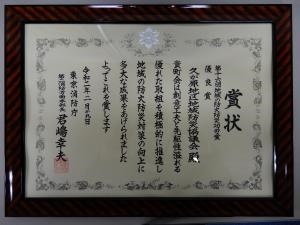 賞状
第十六回地域の防火防災功労賞
優良賞
久が原地区地域防災協議会 殿
貴町会は創意工夫と先駆性溢れる
優れた取組を積極的に推進し
地域の防火防災対策の向上に
多大な成果をあげられました
よってこれを賞します
令和二年二月十九日
東京消防庁
君嶋幸夫